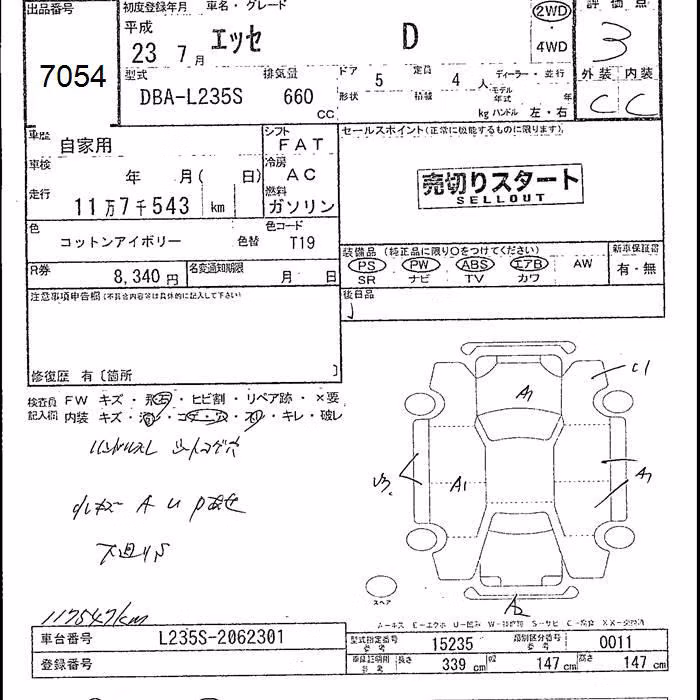 出品番号 初度登録年月 車名・グレード 評価点
7054
平成 23 7月 エッセ D 2WD ・ 4WD 3
型式 DBA-L235S 排気量 660 CC
ドア 5 定員 4人 ディーラー・並行
形状 積載 kg モデル年式 年 ハンドル 左・右
外装 内装
C C
車歴 自家用 シフト FAT
セールスポイント(正常に機能するものに限ります)
車検 年 月( 日) 冷房 AC
走行 11万7千543 km 燃料 ガソリン
売切りスタート
SELLOUT
色 コットンアイボリー 色替 色コード T19
装備品 (純正品に限り○をつけてください) 新車保証書
PS PW ABS エアB AW 有・無
SR ナビ TV カワ
R券 8,340円 名変通知期限 月 日
後日品
注意事項申告欄(不具合内容等は具体的に記入して下さい)
修復歴 有〔箇所 〕
検査員 FW キズ・飛石・ヒビ割・リペア跡・×要
記入欄 内装 キズ・汚・コゲ・穴・スレ・キレ・破レ
ハンドルスレ シートコゲ穴
小キズ A U P あせ
下廻りS
117547km
C1
A1
U3
A1
A1
A2
スペア
A-キズ E-エクボ U-凹ミ W-補修跡 S-サビ C-腐食 XX-交換済
車台番号 L235S-2062301
型式指定番号 参考 15235 類別区分番号 参考 0011
登録番号
車検証明細 参考 長さ 339cm 巾 147cm 高さ 147cm